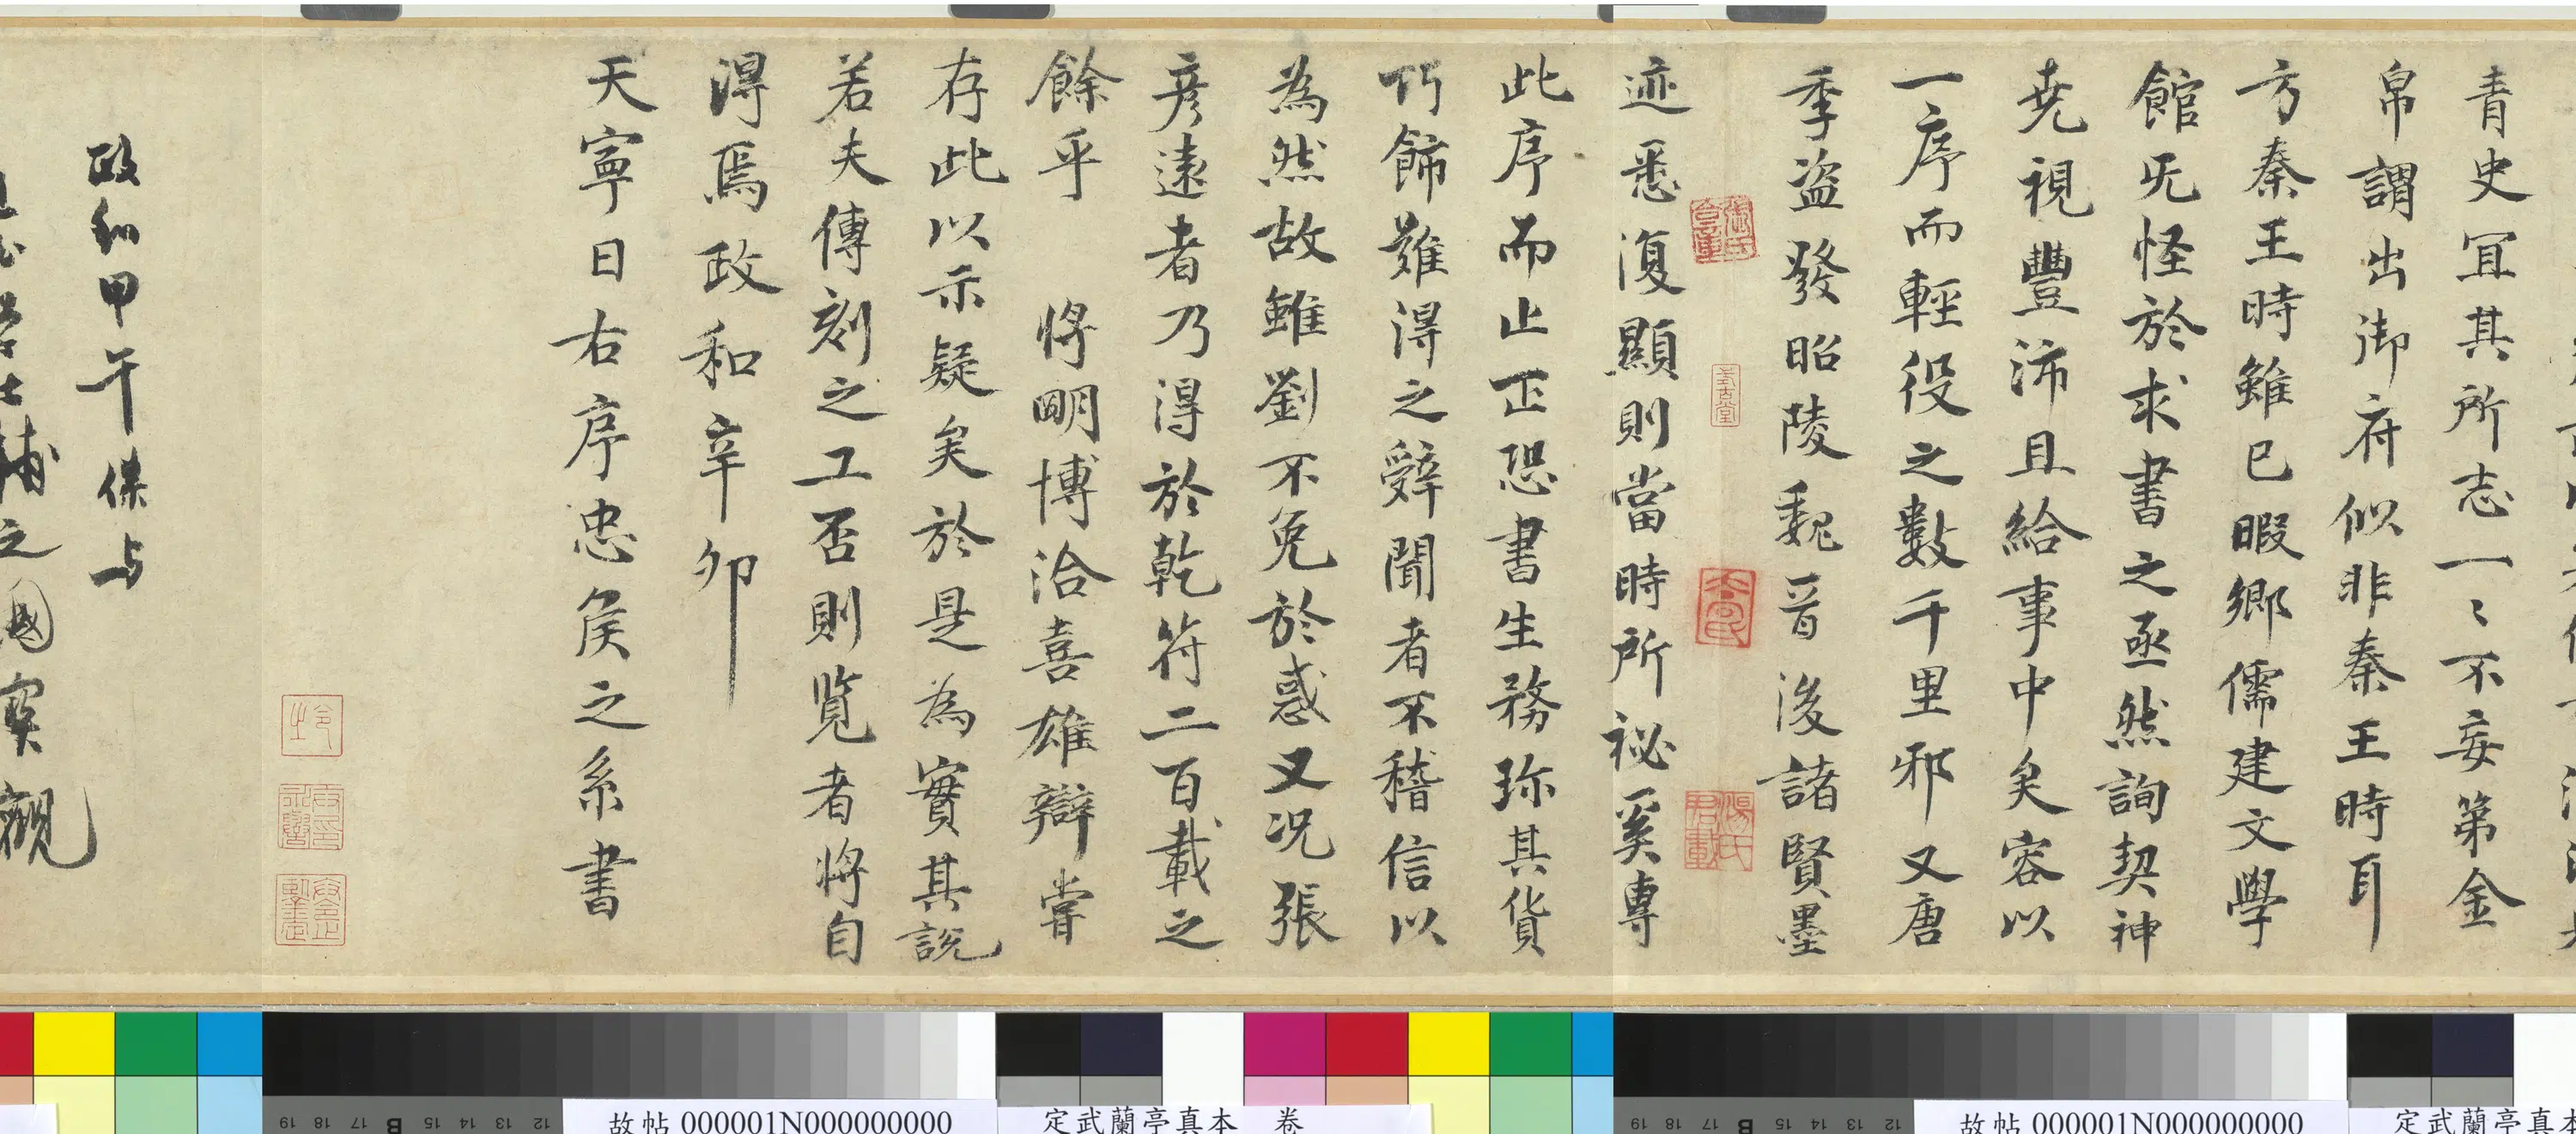 青史冝其所志一〻不妄第金
帛謂出御府似非秦王時耳
方秦王時雖已暇鄉儒建文學
館旡怪於求書之亟然詢契神
尭視豐沛且給事中矣容以
一序而輕役之數千里邪又唐
季盜發昭陵魏晉後諸賢墨
迹悉復顯則當時所祕奚專
此序而止正恐書生務珎其貨
巧飾難得之辭聞者不稽信以
為然故雖劉不免於惑又況張
彥遠者乃得於乾符二百載之
餘乎 將明博洽喜雄辯嘗
存此以示疑矣於是為實其說
若夫傳刻之工否則覽者將自
得焉政和辛卯
天寧日右序忠矦之系書
政和甲午保与
輔之國寳觀
故帖 000001N000000000
定武蘭亭真本 卷
故帖 000001N000000000
定武蘭亭真本
19 18 17 B 15 14 13 12
19 18 17 B 15 14 13 12